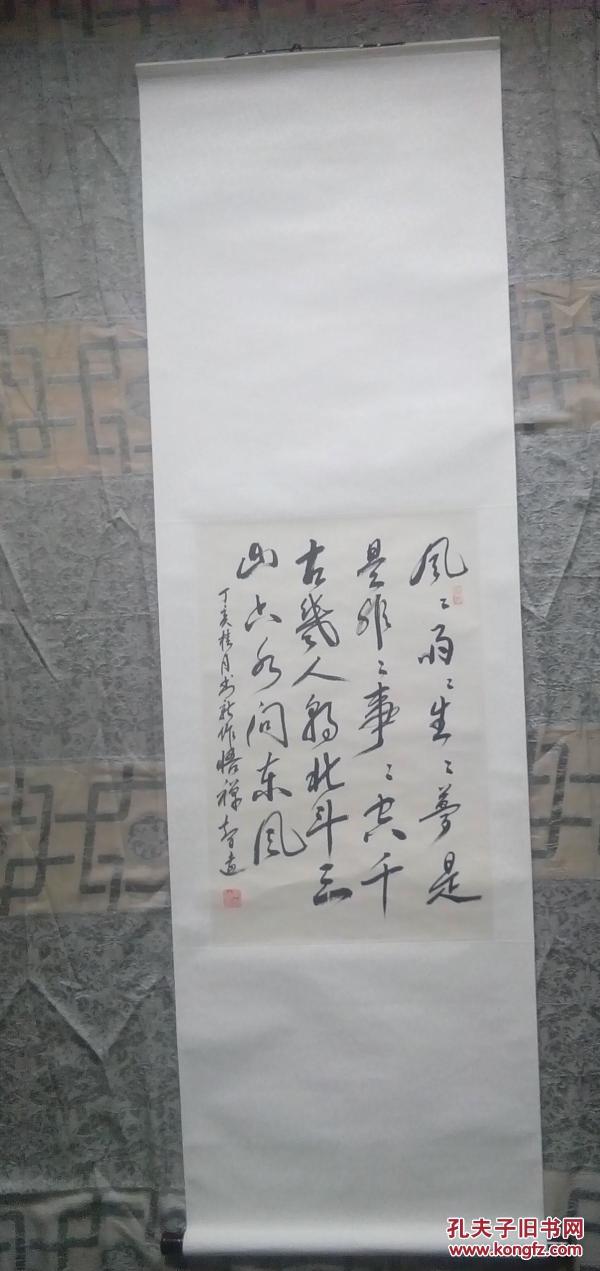 风〻雨〻生〻夢是
是非〻事〻空千
古幾人翱北斗三
山六水问东风
丁亥桂月书新作悟禅 智
孔夫子旧书网
www.kongfz.com